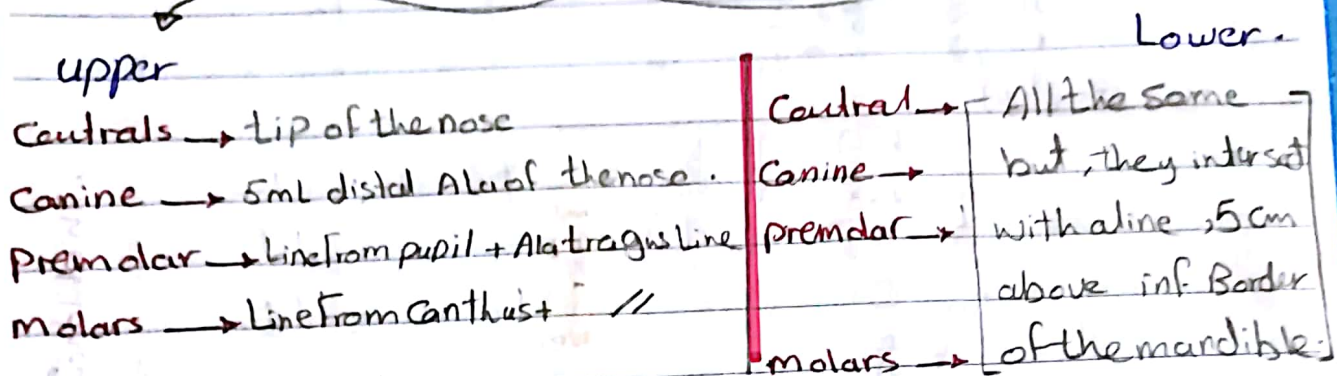 upper
Centrals → tip of the nose
Canine → 5mL distal Ala of the nose.
Premolar → Line from pupil + Ala tragus Line
Molars → Line From Canthus + //
Lower.
Central → All the same
Canine → but, they interset
premolar → with a line ,5 cm
above inf. Border
molars → of the mandible.